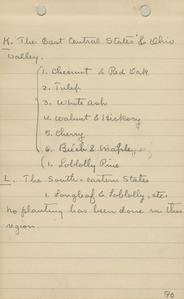 K. The East Central States & Ohio
Valley.
1. Chesnut & Red Oak
2. Tulip
3. White Ash
4. Walnut & Hickory
5. Cherry
6. Beech & Maple
1. Loblolly Pine
L. The South-eastern States
1. Longleaf & Loblolly, etc.
No planting has been done in this
region.
90